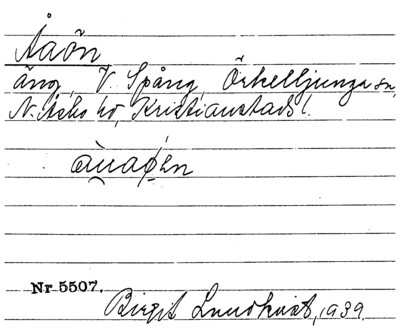 Åaön
äng, V. Spång, Örkelljunga sn,
N. Åsbo hd, Kristianstads l.
Nr 5507.
Birgit Lundkvist, 1939.